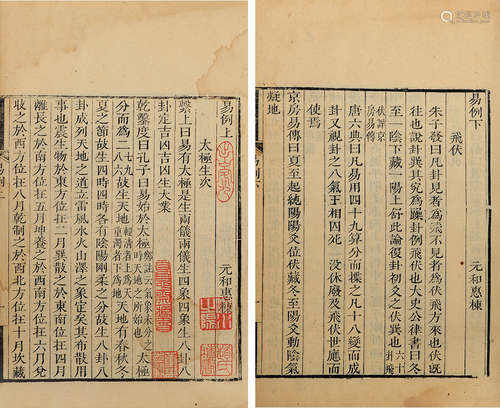 易例上
元和惠棟
太極生次
繫上曰易有太極是生兩儀兩儀生四象四象生八卦八
卦定吉凶吉凶生大業
乾鑿度曰孔子曰易始於太極鄭註云氣象未分之時天地之所始也太極
分而為二七九八六故生天地輕清者上為天重濁者下為地天地有春秋冬
夏之節故生四時四時各有陰陽剛柔之分故生八卦八
卦成列天地之道立雷風水火山澤之象定矣其布散用
事也震生物於東方位在二月巽散之於東南位在四月
離長之於南方位在五月坤養之於西南方位在六月兌
收之於西方位在八月乾制之於西北方位在十月坎藏
易例下
元和惠棟
飛伏
朱子發曰凡卦見者為飛不見者為伏飛方來也伏既
往也說卦巽其究為躁卦例飛伏也太史公律書曰冬
至一陰下藏一陽上舒此論復卦初爻之伏巽也六十卦飛伏詳京房易傳
唐六典曰凡易用四十九算分而揲之凡十八變而成
卦又視卦之八氣王相囚死 没休廢及飛伏世應而
使焉
京房易傳曰夏至起純陽陽爻位伏藏冬至陽爻動陰氣
凝地